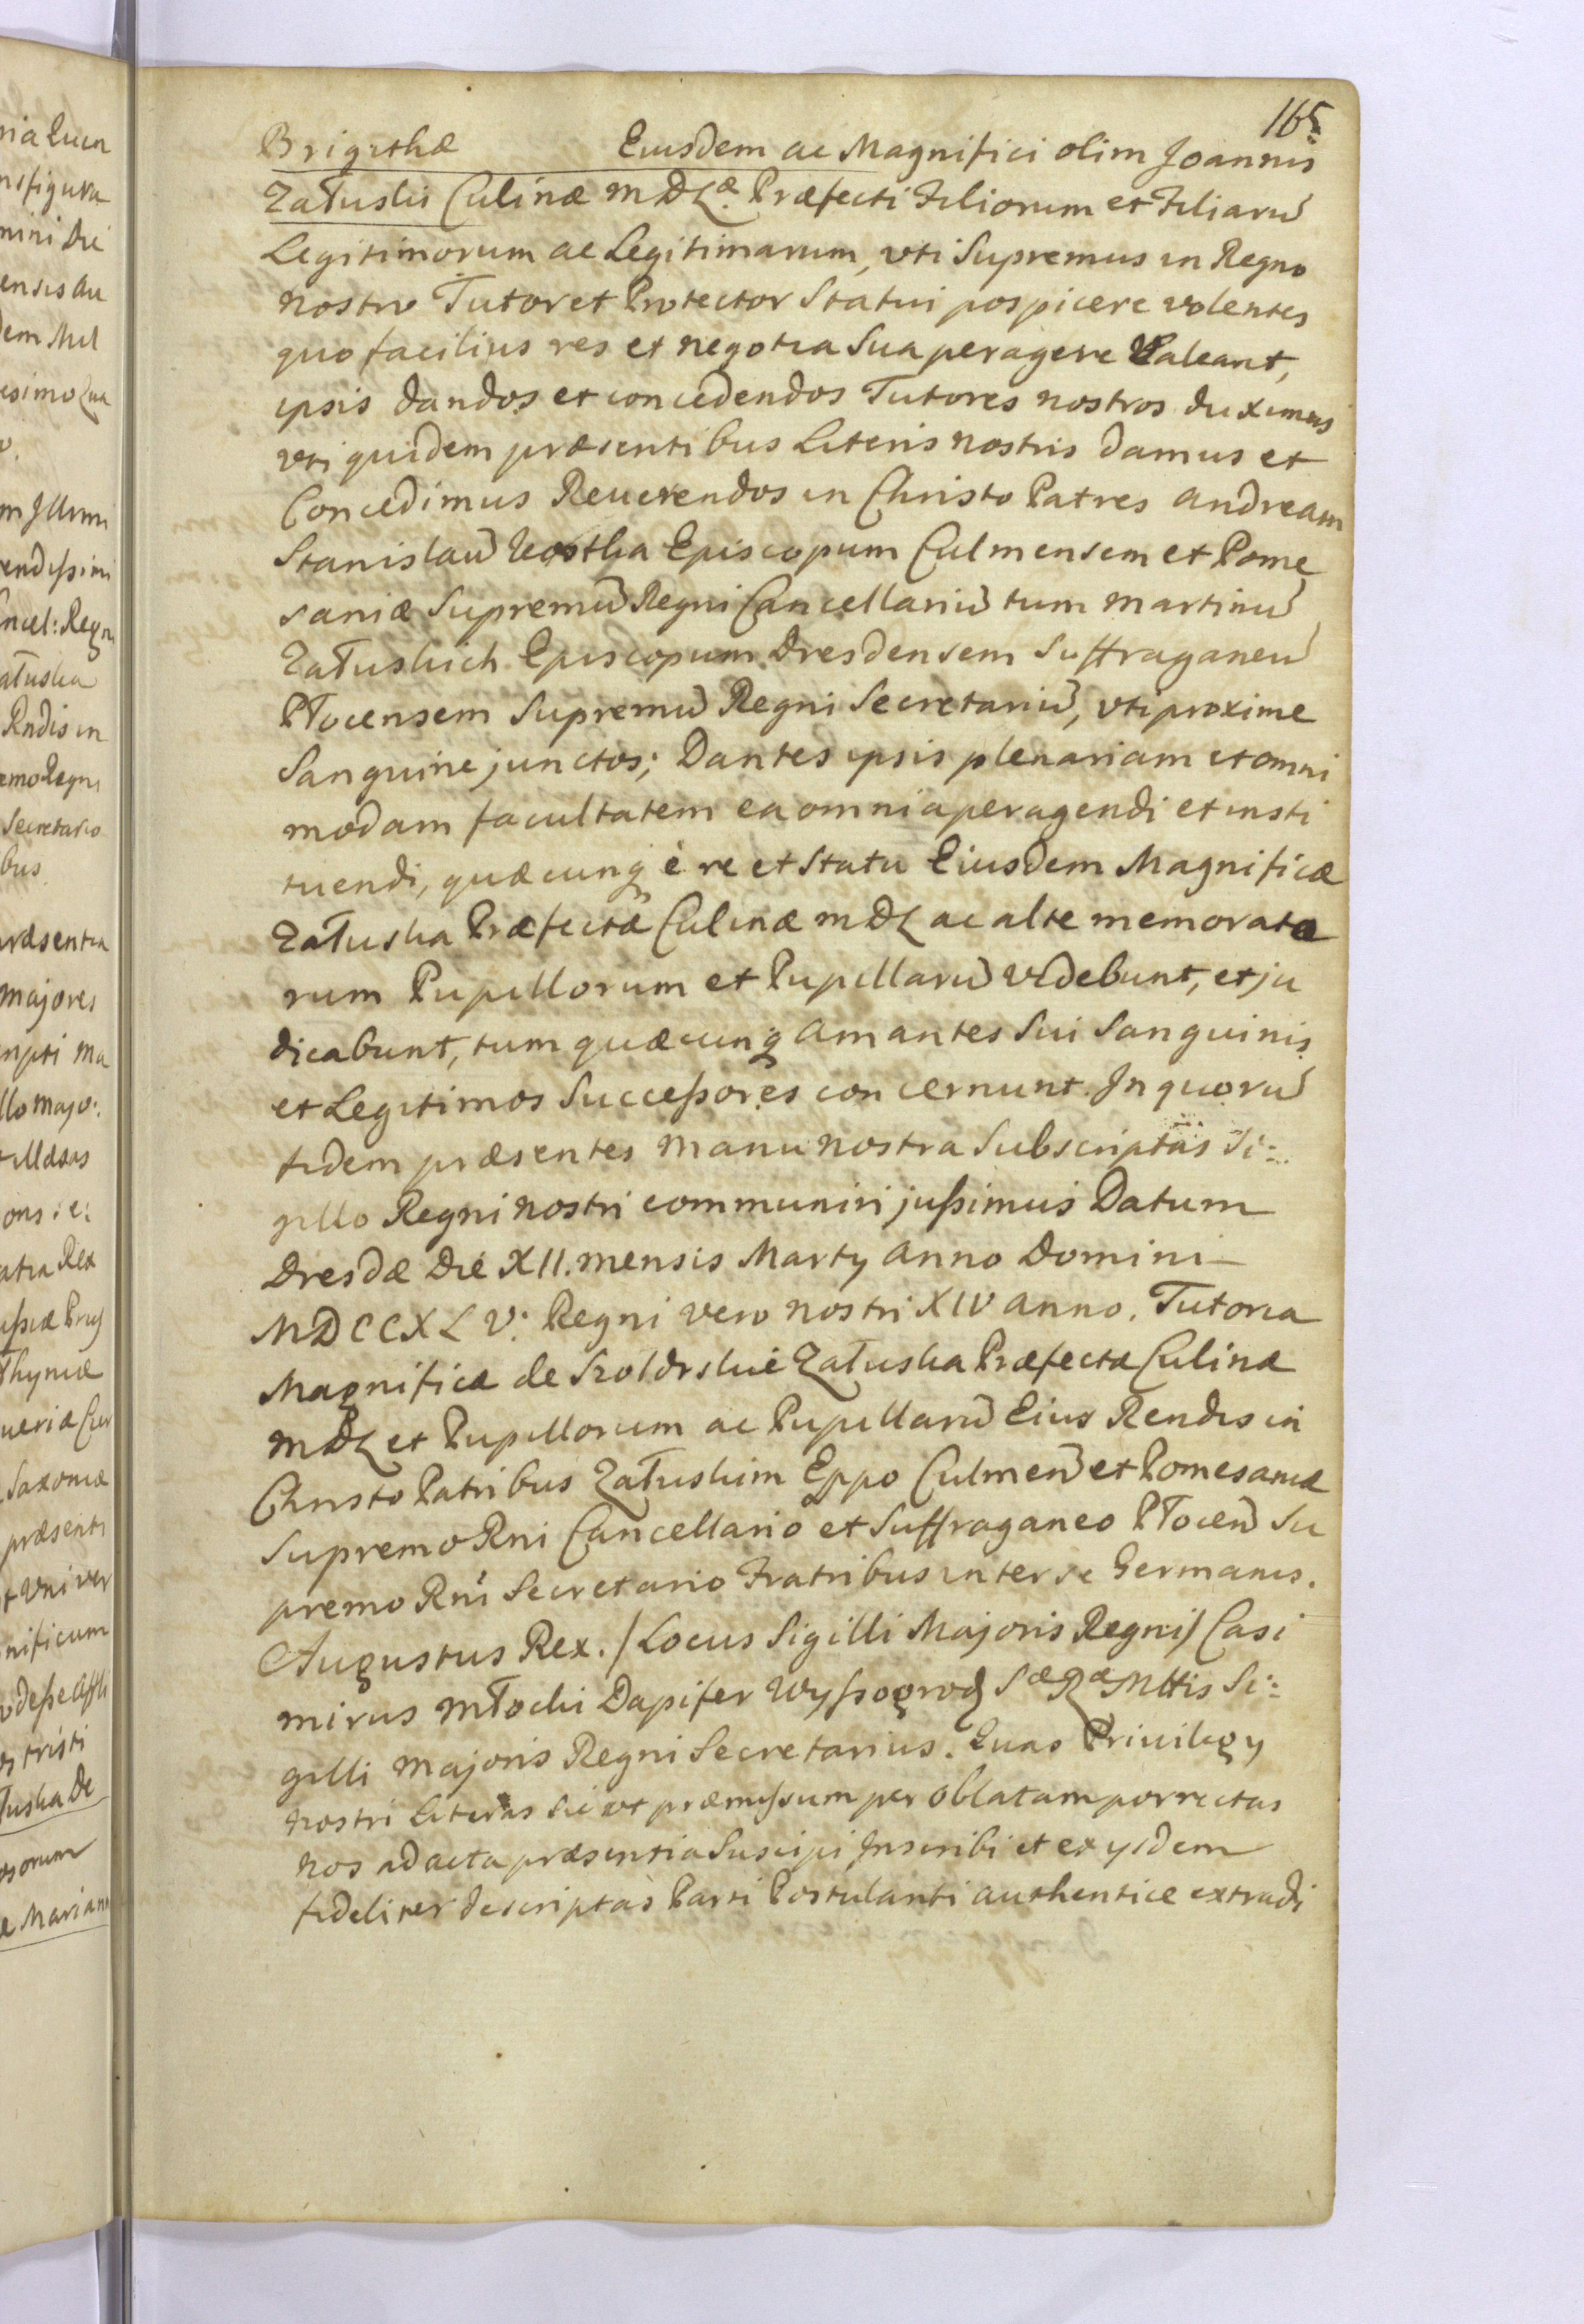 165
Brigithæ Eiusdem ac Magnifici olim Joannis
Załuski Culinæ MDLæ Præfecti Filiorum et Filiarū
Legitimorum ac Legitimarum, vti Supremus in Regno
nostro Tutor et Protector Statui pospicere volentes
quo facilius res et negotia sua peragere Valeant,
ipsis dandos et concedendos Tutores nostros duximus
vti quidem præsentibus Literis nostris damus et
Concedimus Reuerendos in Christo Patres Andream
Stanislaū Kostka Episcopum Culmensem et Pome
saniæ Supremū Regni Cancellariū tum Martinū
Załuskich Episcopum Dresdensem Suffraganeū
Płocensem Supremū Regni Secretariū, vti proxime
Sanguine junctos; Dantes ipsis plenariam et omni
modam facultatem ea omnia peragendi et insti
tuendi, quæcunq è re et Statu Eiusdem Magnificæ
Załuska Præfectæ Culinæ MDL ac alte memorata
rum Pupillorum et Pupillarū videbunt, et ju
dicabunt, tum quæcunq amantes sui Sanguinis
et Legitimos Succeßores concernunt. In quorū
fidem præsentes manu nostra Subscriptas Si:
gillo Regni nostri communiri jußimus Datum
Dresdæ Die XII. mensis Marty Anno Domini
MDCCXLV. Regni vero nostri XIV anno. Tutoria
Magnificæ de Szołdrskie Załuska Præfectæ Culinæ
MDL et Pupillorum ac Pupillarū Eius Rendis in
Christo Patribus Załuskim Eppo Culmeñ et Pomesaniæ
Supremo Rni Cancellario et Suffraganeo Płoceñ Su
premo Rni Secretario Fratribus inter se Germanis.
Augustus Rex. / Locus Sigilli Majoris Regni / Casi
mirus Młocki Dapifer Wyßogrod SæRæMttis Si:
gilli Majoris Regni Secretarius. Quas Priuilegy
nostri Literas sic vt præmißum per Oblatam porrectas
nos ad acta præsentia Suscipi, Inscribi et ex ysdem
fideliter descriptas Parti Postulanti authentice extradi